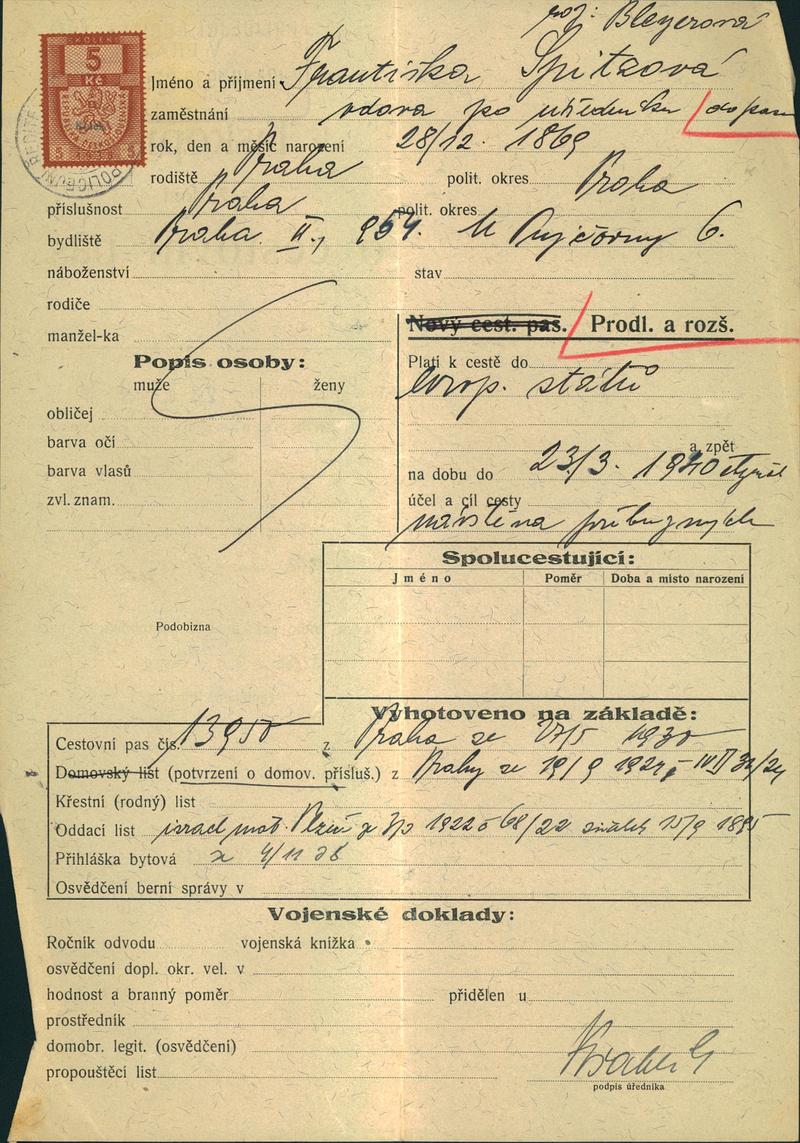 roz: Bleyerová
5
Kč
Jméno a příjmení Františka Spitzová
zaměstnání vdova po úředníku do pasu
rok, den a měsíc narození 28/12. 1869
rodiště Praha polit. okres Praha
příslušnost Praha polit. okres
bydliště Praha II., 954. U Půjčovny 6.
náboženství stav
rodiče
manžel-ka
Nový cest. pas. Prodl. a rozš.
Popis osoby:
muže ženy
obličej
barva očí
barva vlasů
zvl. znam.
Platí k cestě do
evrop. států
a zpět
na dobu do 23/3. 1940
účel a cíl cesty
návštěva příbuzných
Spolucestující:
Jméno Poměr Doba a místo narození
Podobizna
Vyhotoveno na základě:
Cestovní pas čís. 13950 z Praha ze 27/5 1930
Domovský list (potvrzení o domov. přísluš.) z Prahy ze 19/9 1924
Křestní (rodný) list
Oddací list israel. mat. Plzeň 1922 č 68/22 sňatek 15/9 1895
Přihláška bytová z 4/11 38
Osvědčení berní správy v
Vojenské doklady:
Ročník odvodu vojenská knížka
osvědčení dopl. okr. vel. v
hodnost a branný poměr přidělen u
prostředník
domobr. legit. (osvědčení)
propouštěcí list
podpis úředníka